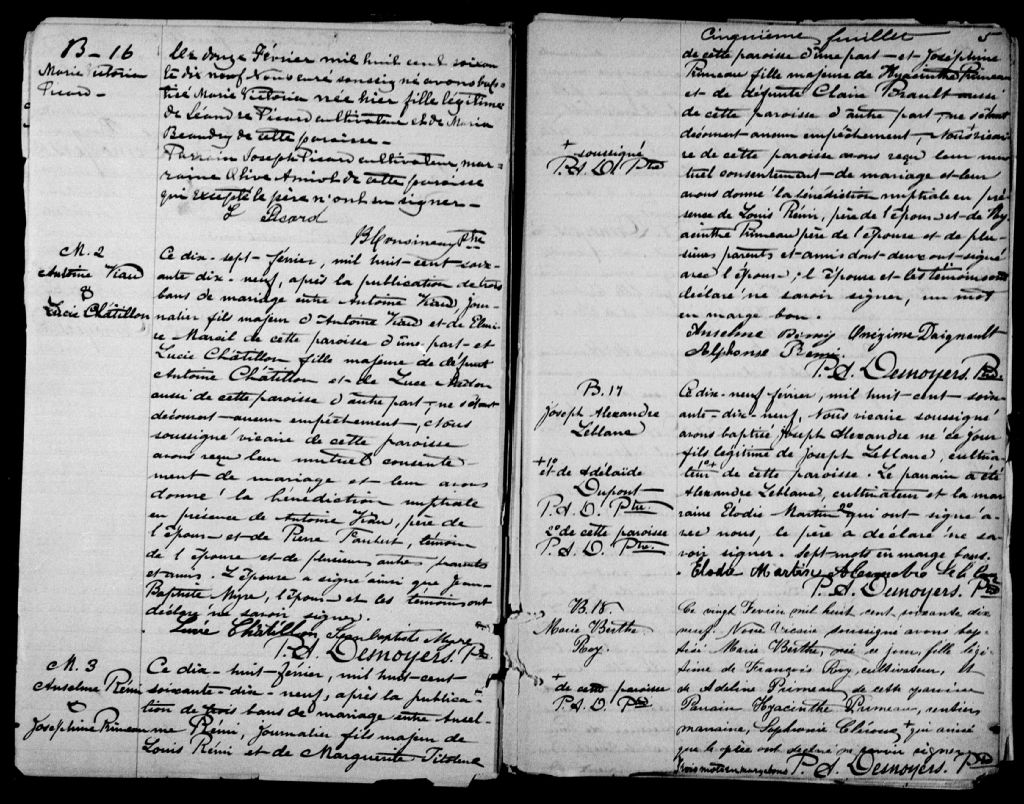 B-16
Marie Victoria
Picard-
Le douze Février mil huit cent soixan
te dix neuf Nous curé soussigné avons bap-
tisé Marie Victoria née hier fille légitime
de Léandre Picard cultivateur et de Maria
Beaudry de cette paroisse-
Parrain Joseph Picard cultivateur mar-
raine Olive Amiot de cette paroisse
qui excepté le père n'ont su signer-
L Picard
Ptre
M. 2
Antoine Viau
&
Lucie Châtillon
Ce dix-sept-février, mil huit-cent soix-
ante dix-neuf, après la publication de trois
bans de mariage entre Antoine Viau, jour-
nalier fils majeur d'Antoine Viau et de Elmi-
re Marcil de cette paroisse d'une part-et
Lucie Châtillon fille majeure de défunt
Antoine Châtillon et-de Luce
aussi de cette paroisse d'autre part; ne s'étant
découvert-aucun empêchement, Nous
soussigné vicaire de cette paroisse
avons reçu leur mutuel consente-
ment de mariage et-leur avons
donné la bénédiction nuptiale
en présence de Antoine Viau, père de
l'époux-et-de Pierre témoin
de l'épouse et-de plusieurs autres parents
et amis. L'épouse a signé ainsi que Jean-
Baptiste Myre, l'époux et les témoins ont
déclaré ne savoir signer.
Lucie Châtillon Jean baptiste Myre
P. A. Demoyers. Ptre
M. 3
Anselme Rémi
&
Josephine Primeau
Ce dix-huit-février, mil huit-cent
soixante-dix-neuf, après la publica-
tion de trois bans de mariage entre Ansel-
me Rémi, journalier fils majeur de
Louis Rémi et de Marguerite
Cinquième feuillet 5
de cette paroisse d'une part-et Joséphine
Primeau fille majeure de Hyacinthe Primeau
et-de défunte Claire Brault-aussi
de cette paroisse d'autre part, ne s'étant
découvert-aucun empêchement, Nous vicai-
re de cette paroisse avons reçu leur mu-
tuel consentement-de mariage et-leur
avons donné la bénédiction nuptiale en pré-
sence de Louis Rémi, père de l'époux-et-de Hy-
acinthe Primeau père de l'épouse et-de plu-
sieurs parents et-amis dont-deux ont-signé
avec l'époux; l'épouse et-les témoins ont
déclaré ne savoir signer, un mot
en marge bon.
+ soussigné
P. A. D. Ptre
Anselme Rémy Onézime Daignault
Alphonse Remi
P. A. Demoyers. Ptre
B. 17
Joseph Alexandre
Leblanc
Ce dix-neuf février, mil huit-cent-soix-
ante-dix-neuf, Nous vicaire soussigné
avons baptisé Joseph Alexandre né ce jour
fils légitime de Joseph Leblanc, cultiva-
teur 1°+ de cette paroisse. Le parrain a été
Alexandre Leblanc, cultivateur et la mar
raine Elodie Martin 2° qui ont signé a-
vec nous, le père a déclaré ne sa-
voir signer. Sept mots en marge bons.
+1°
et de Adélaide
Dupont
P. A. D. Ptre.
2° de cette paroisse
P. A. D. Ptre.
Elodie Martin Alexandre Leblanc
P. A. Demoyers. Ptre
B. 18.
Marie Birthe
Roy.
Ce vingt Février mil huit cent soixante dix
neuf. Nous Vicaire soussigné avons bap-
tisé Marie Birthe, née ce jour, fille légi-
time de François Roy, cultivateur, et
de Adeline Primeau de cette paroisse
Parrain Hyacinthe Primeau, rentier
marraine, Sophronie + qui ainsi
que le père ont déclaré ne savoir signer
+ de cette paroisse
P. A. D. Ptre
trois mots en marge bons P. A. Demoyers. Ptre